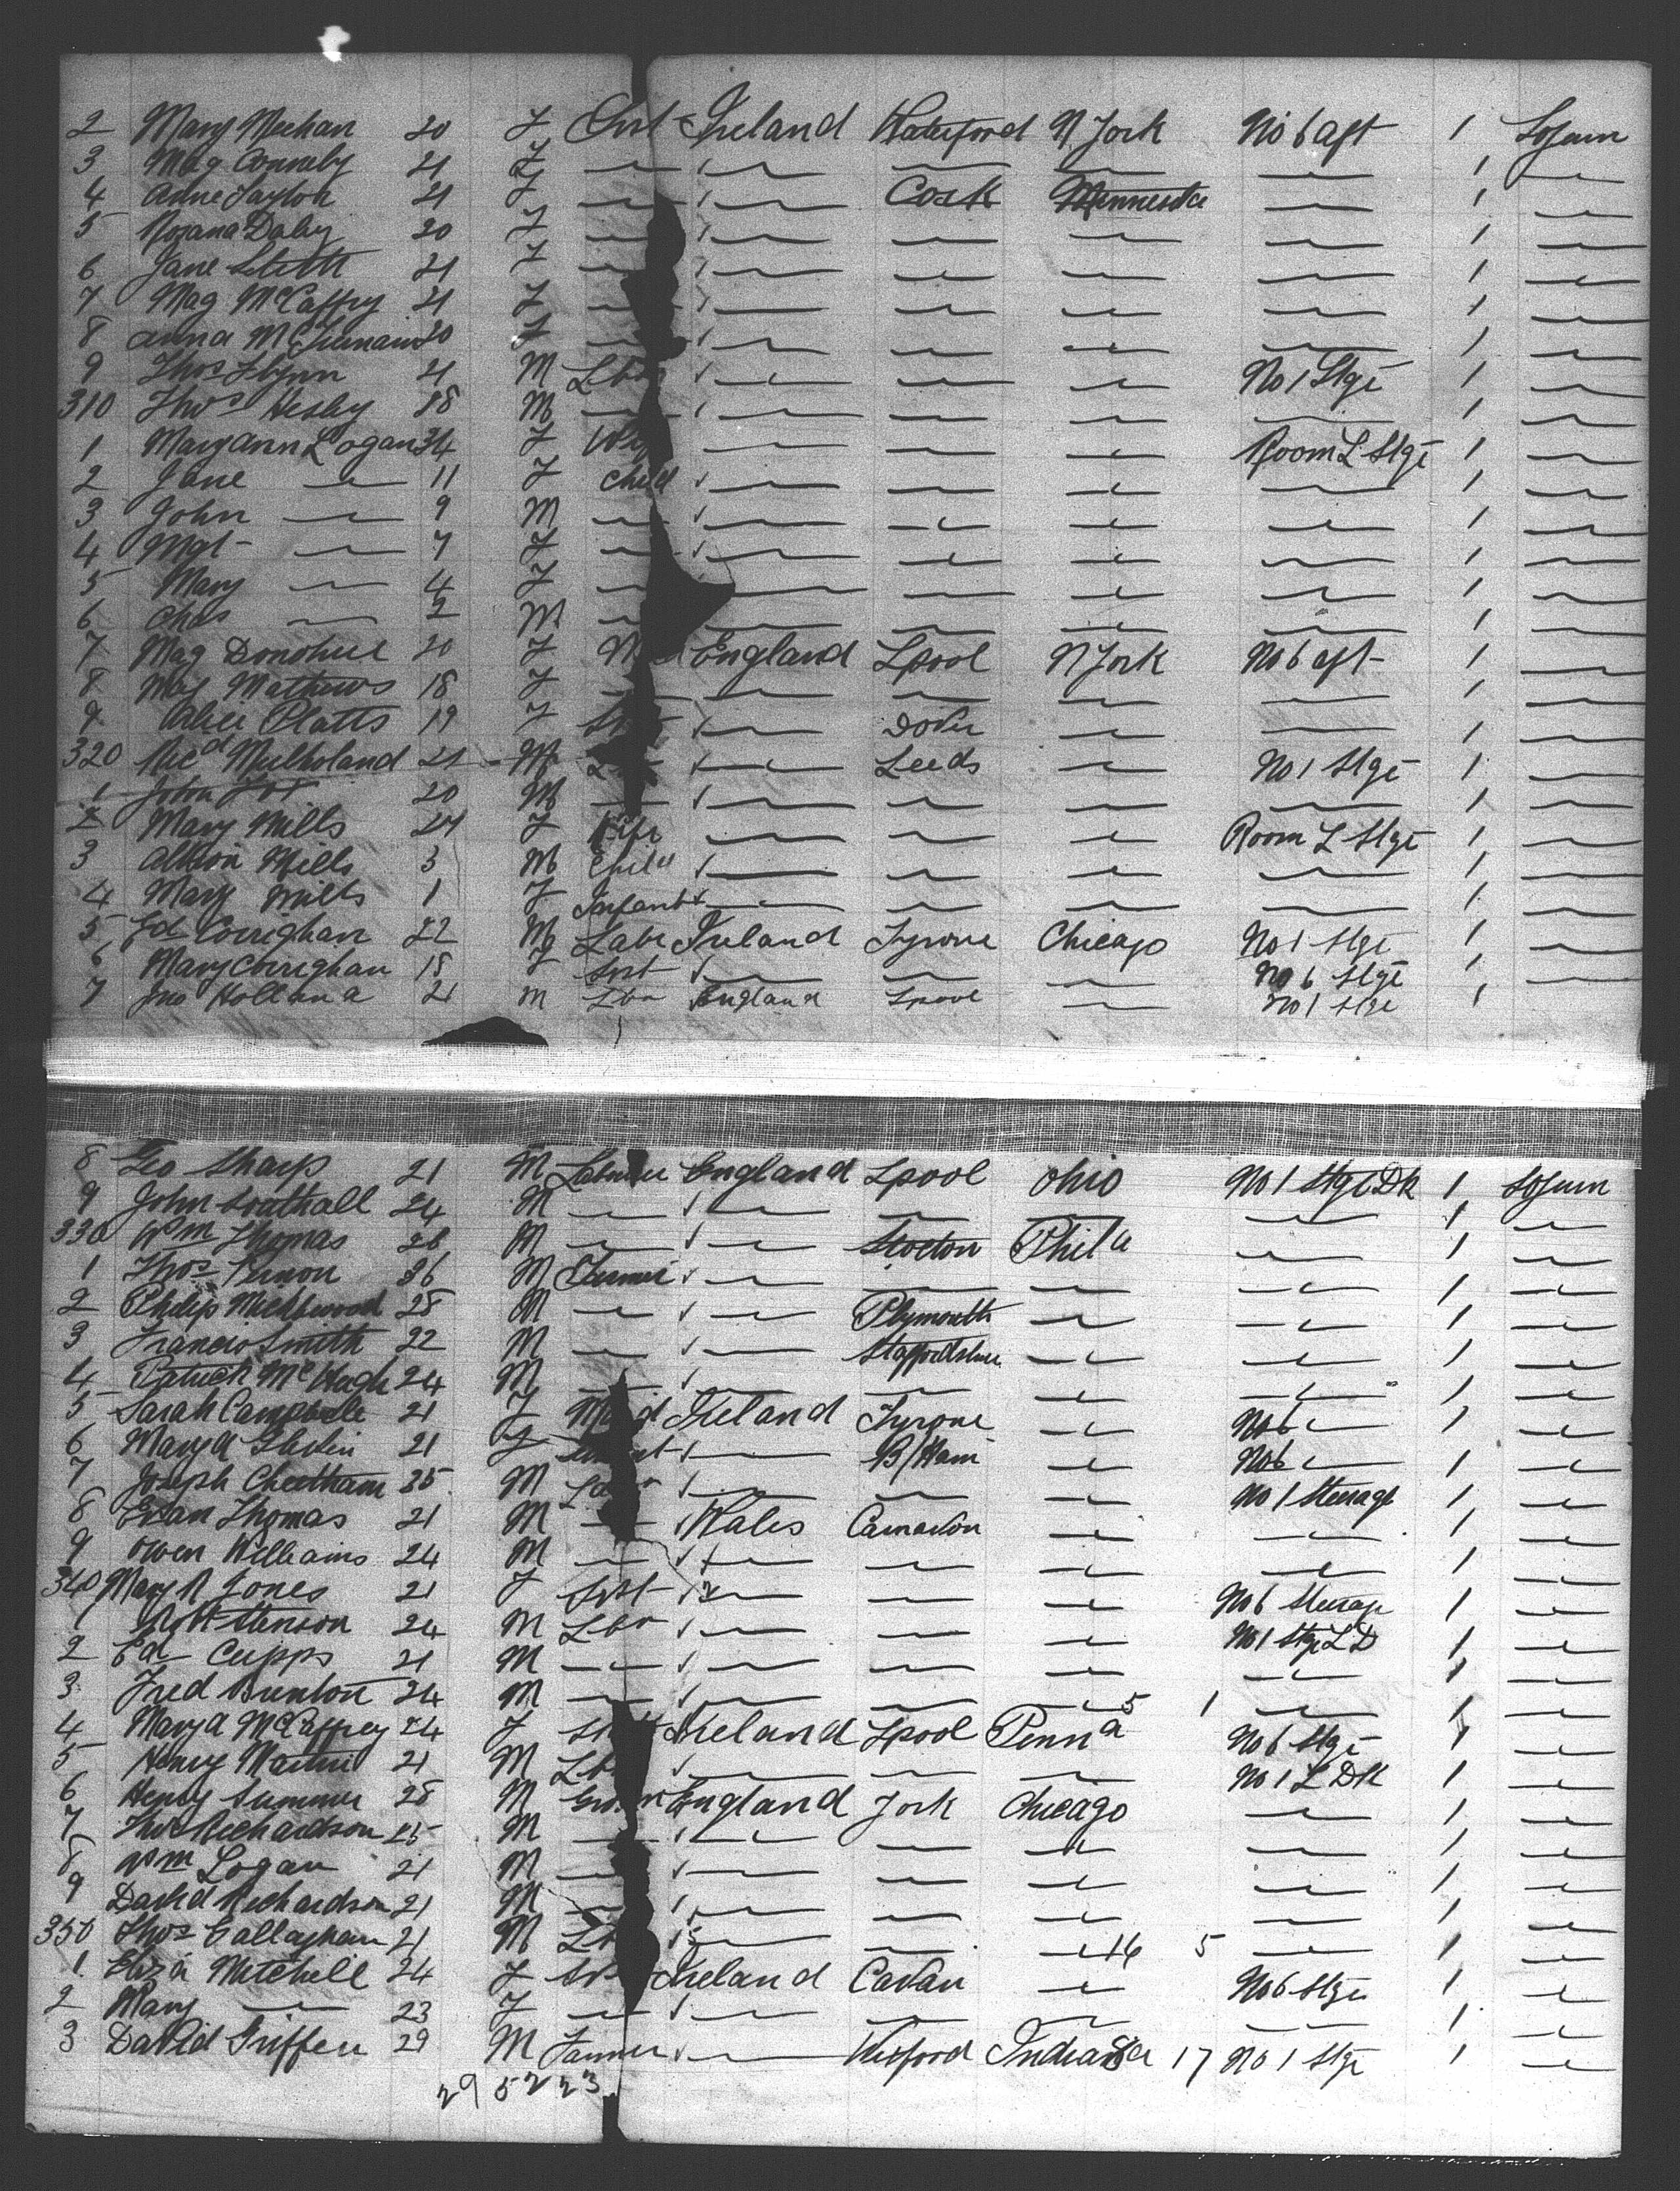 2 Mary Meehan 20 F Srvt Ireland Waterford N York No 6 aft 1 Sojurn
3 Mag 21 F — — — — — 1 —
4 Anne Taylor 21 F — — Cork Minnesota — 1 —
5 Rozana Daley 20 F — — — — — 1 —
6 Jane 21 F — — — — — 1 —
7 Mag McCaffry 21 F — — — — — 1 —
8 Anna 20 F — — — — — 1 —
9 Thos Flynn 21 M Lbr — — — No 1 Stge 1 —
310 Thos Hesley 18 M — — — — — 1 —
1 Mary Ann Logan 34 F Wife — — — Room L Stge 1 —
2 Jane — 11 F Child — — — — 1 —
3 John — 9 M — — — — — 1 —
4 Mgt — 7 F — — — — — 1 —
5 Mary — 4 F — — — — — 1 —
6 Chas — 2 M — — — — — 1 —
7 Mag Donohue 20 F England Lpool N York No 6 aft 1 —
8 Mag Mathews 18 F — — — — — 1 —
9 Alice Platts 19 F — Dover — — 1 —
320 Micd Mulholand 21 M — Leeds — No 1 Stge 1 —
1 John Fox 20 M — — — — — 1 —
2 Mary Mills 24 F Wife — — — Room L Stge 1 —
3 Mills 3 M Child — — — — 1 —
4 Mary Mills 1 F Infant — — — — 1 —
5 Ed Corrighan 22 M Labr Ireland Tyrone Chicago No 1 Stge 1 —
6 Mary Corrighan 18 F Srvt — — — No 6 Stge 1 —
7 Jno Holland 21 M Lbr England Lpool — No 1 Stge 1
8 Geo Sharp 21 M Labourer England Lpool Ohio No 1 Stge Dk 1 Sojurn
9 John Southall 24 M — — — — — 1 —
330 Wm Thomas 26 M — — Stocton Phila — 1 —
1 Thos Vernon 36 M Farmer — — — — 1 —
2 Philip 28 M — — Plymouth — — 1 —
3 Francis Smith 22 M — — Staffordshire — — 1 —
4 Patrick McHugh 24 M — — — — — 1 —
5 Sarah Campbell 21 F Maid Ireland Tyrone — No 6 — 1 —
6 Mary A 21 F — B/Ham — No 6 — 1 —
7 Joseph Cheetham 35 M — — — No 1 Steerage 1 —
8 Evan Thomas 21 M — Wales Carnavon — — 1 —
9 Owen Williams 24 M — — — — — 1 —
340 Mary A Jones 21 F Srvt — — — No 6 Steerage 1 —
1 Robt Stenson 24 M Lbr — — — No 1 Stge L D 1 —
2 Ed Cupps 21 M — — — — — 1 —
3 Fred Brunton 24 M — — — — 5 1 — 1 —
4 Mary A McCaffrey 24 F Ireland Lpool Penna No 6 Stge 1 —
5 Henry Martin 21 M Lbr — — — No 1 L Dk 1 —
6 Henry Summer 28 M England York Chicago — 1 —
7 Thos Richardson 25 M — — — — — 1 —
8 Wm Logan 21 M — — — — — 1 —
9 David Richardson 21 M — — — — — 1 —
350 Thos Callaghan 21 M — — — 16 5 — 1 —
1 Eliza Mitchell 24 F Ireland Cavan — No 6 Stge 1 —
2 Mary — 23 F — — — — — 1 —
3 David Griffen 29 M Farmer — Wexford Indiana 17 No 1 Stge 1 —
29 52 23